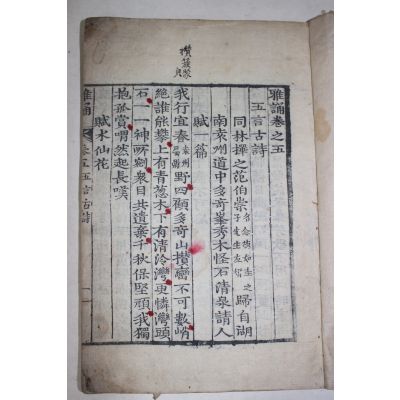 攢簇聚皃
雅誦卷之五
五言古詩
同林擇之范伯崇歸自湖
南袁州道中多奇峯秀木怪石清泉請人
賦一篇
我行宜春袁州屬縣野四顧多奇山攢巒不可數峭
絶誰能攀上有青葱木下有清泠灣更憐灣頭
石一一神所剜衆目共遺棄千秋保堅頑我獨
抱孤賞喟然起長嘆
賦水仙花
雅誦 卷五 五言古詩 一